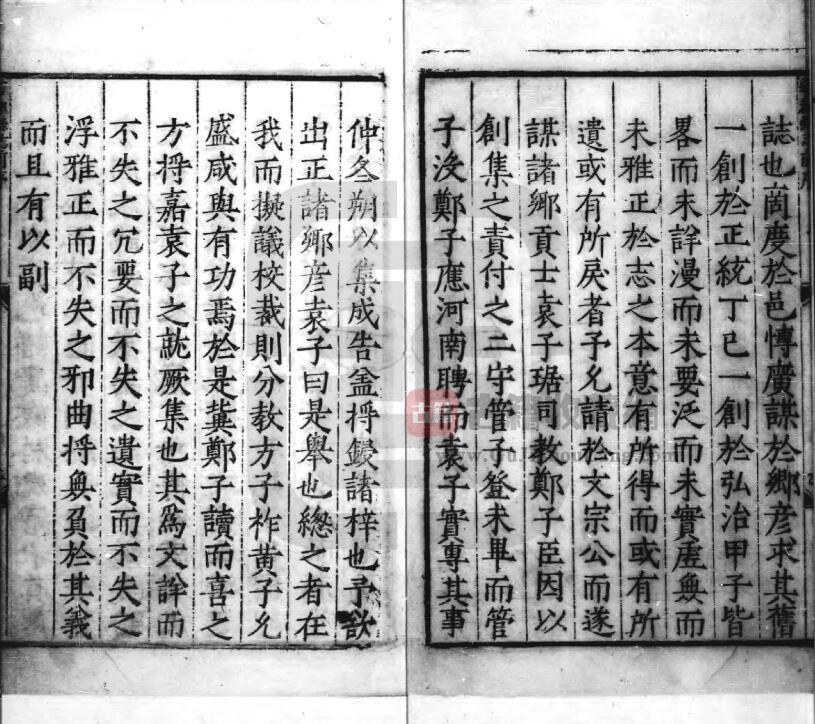 誌也啇度於邑慱廣謀於鄉彦求其舊
一創於正統丁巳一創於弘治甲子皆
畧而未詳漫而未要泛而未實虗無而
未雅正於志之本意有所得而或有所
遺或有所戾者予允請於文宗公而遂
謀諸鄉貢士袁子琚司教鄭子臣因以
創集之責付之二守管子登未畢而管
子没鄭子應河南聘而袁子實專其事
仲冬朔以集成告並捋鋟諸梓也予欲
出正諸鄉彦袁子曰是舉也緫之者在
我而擬議校裁則分教方子柞黄子允
盛咸與有功焉於是冀鄭子讀而喜之
方捋嘉袁子之就厥集也其爲文詳而
不失之冗要而不失之遺實而不失之
浮雅正而不失之邪曲捋無負於其義
而且有以副
古籍